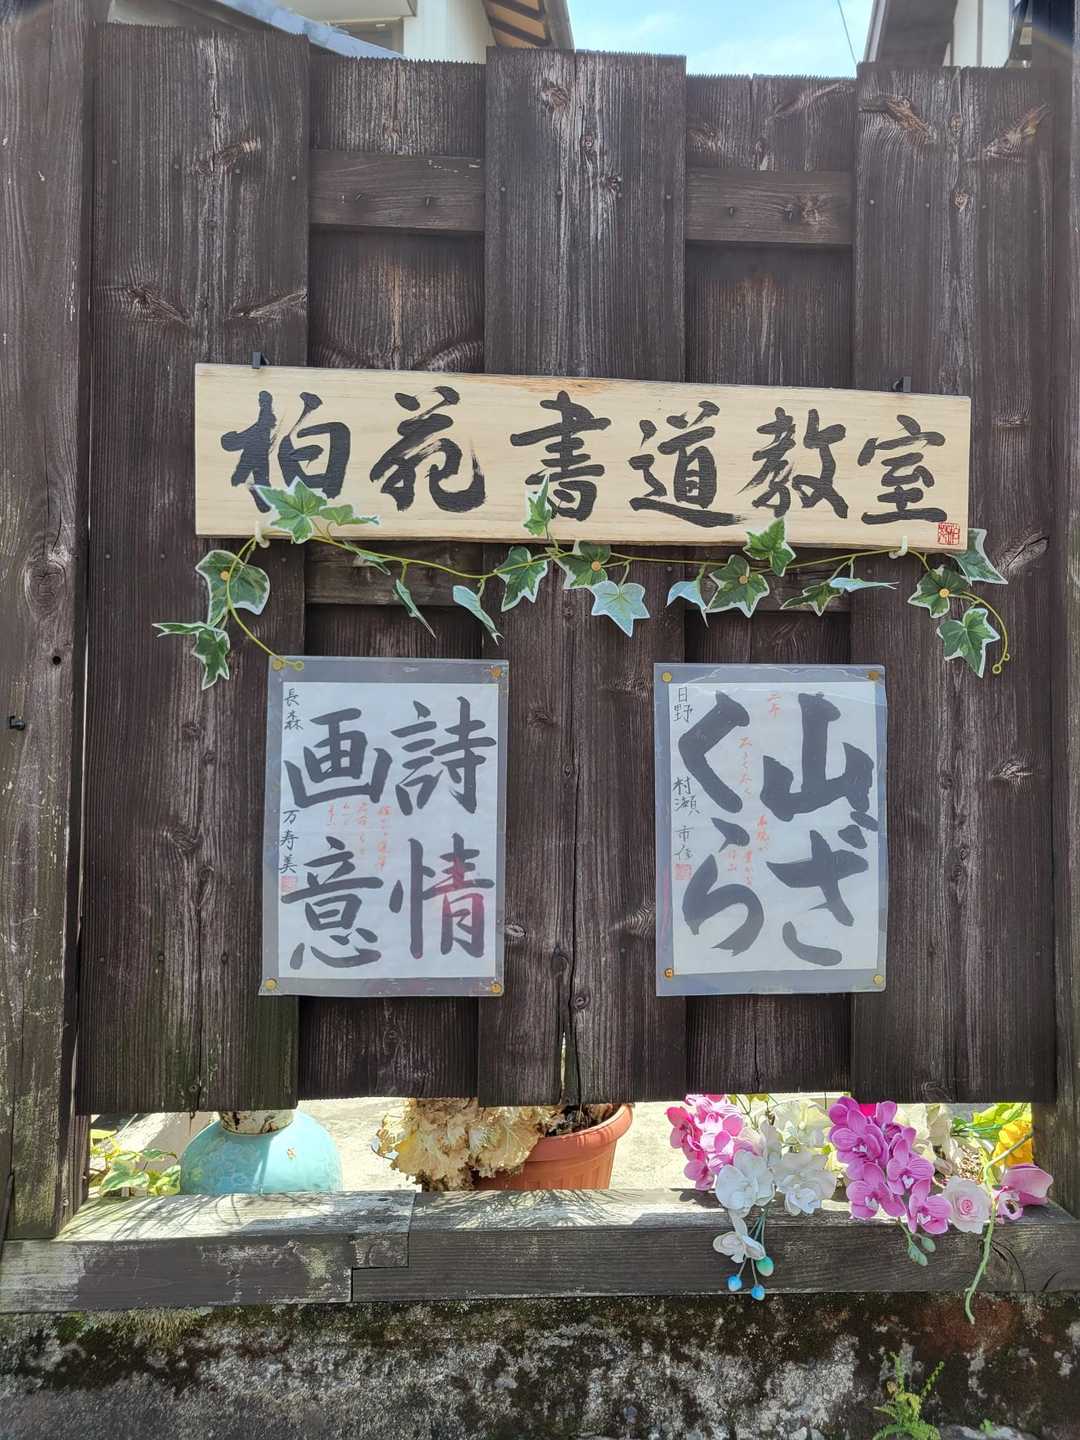 柏苑書道教室
詩情
画意
長森 万寿美
山ざ
くら
二年
日野 村瀬 市信